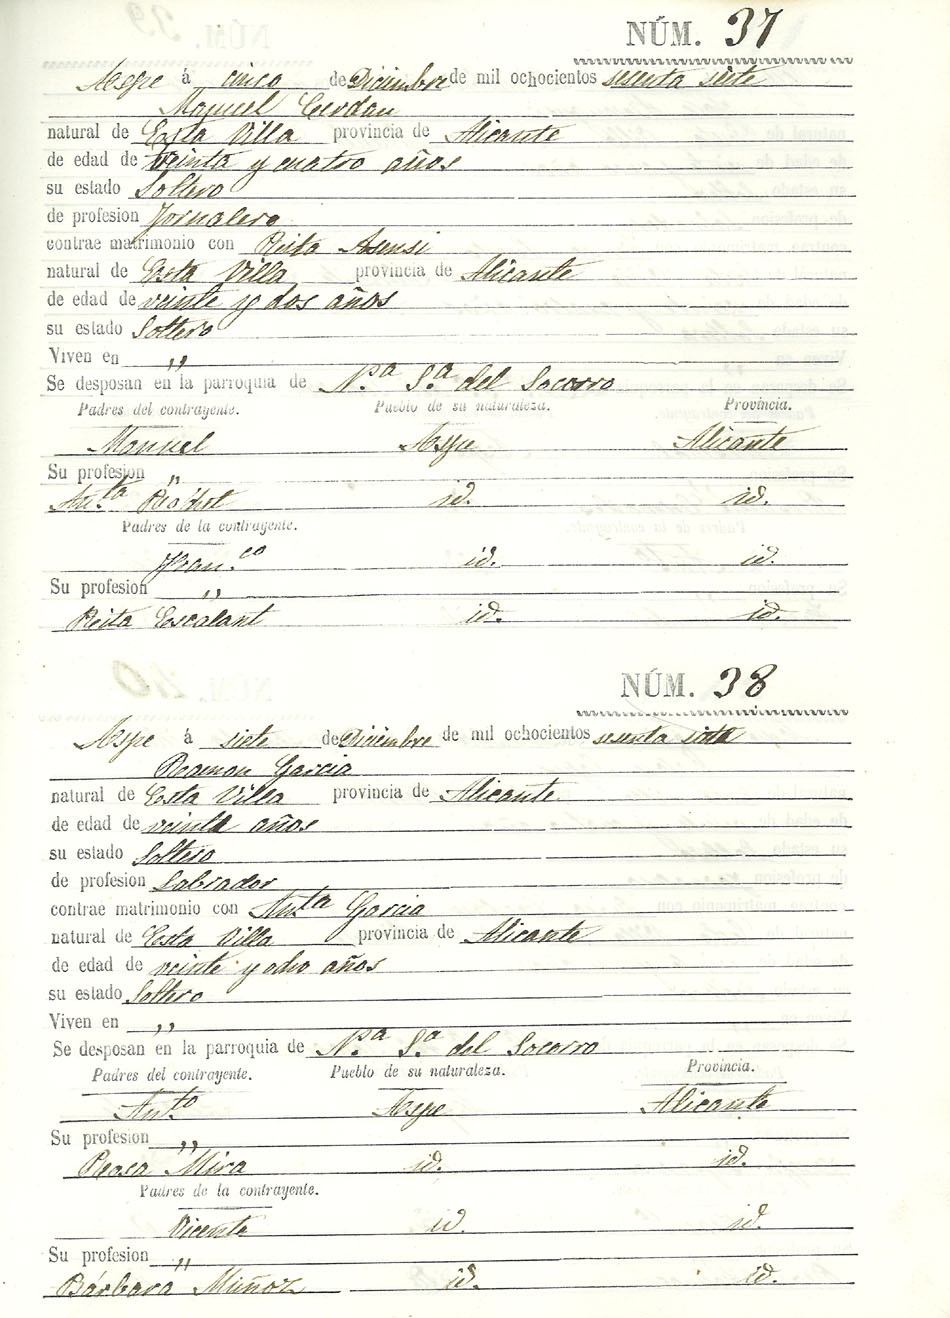 NÚM. 37
Aspe á cinco de Diciembre de mil ochocientos sesenta siete
Manuel Cerdan
natural de Esta Villa provincia de Alicante
de edad de Veinta y cuatro años
su estado Soltero
de profesion Jornalero
contrae matrimonio con Rita Asensi
natural de Esta Villa provincia de Alicante
de edad de veinte y dos años
su estado Soltero
Viven en ,,
Se desposan en la parroquia de N.ª S.ª del Socorro
Padres del contrayente. Pueblo de su naturaleza. Provincia.
Manuel Aspe Alicante
Su profesion ,,
Ant.ta id. id.
Padres de la contrayente.
Fran.co id. id.
Su profesion ,,
Rita Escalant id. id.
NÚM. 38
Aspe á siete de Diciembre de mil ochocientos sesenta siete
Ramon Garcia
natural de Esta Villa provincia de Alicante
de edad de veinta años
su estado Soltero
de profesion Labrador
contrae matrimonio con Ant.ta Garcia
natural de Esta Villa provincia de Alicante
de edad de veinte y ocho años
su estado Soltero
Viven en ,,
Se desposan en la parroquia de N.ª S.ª del Socorro
Padres del contrayente. Pueblo de su naturaleza. Provincia.
Ant.to Aspe Alicante
Su profesion ,,
Rosa Mira id. id.
Padres de la contrayente.
Vicente id. id.
Su profesion ,,
Bárbara Muñoz id. id.